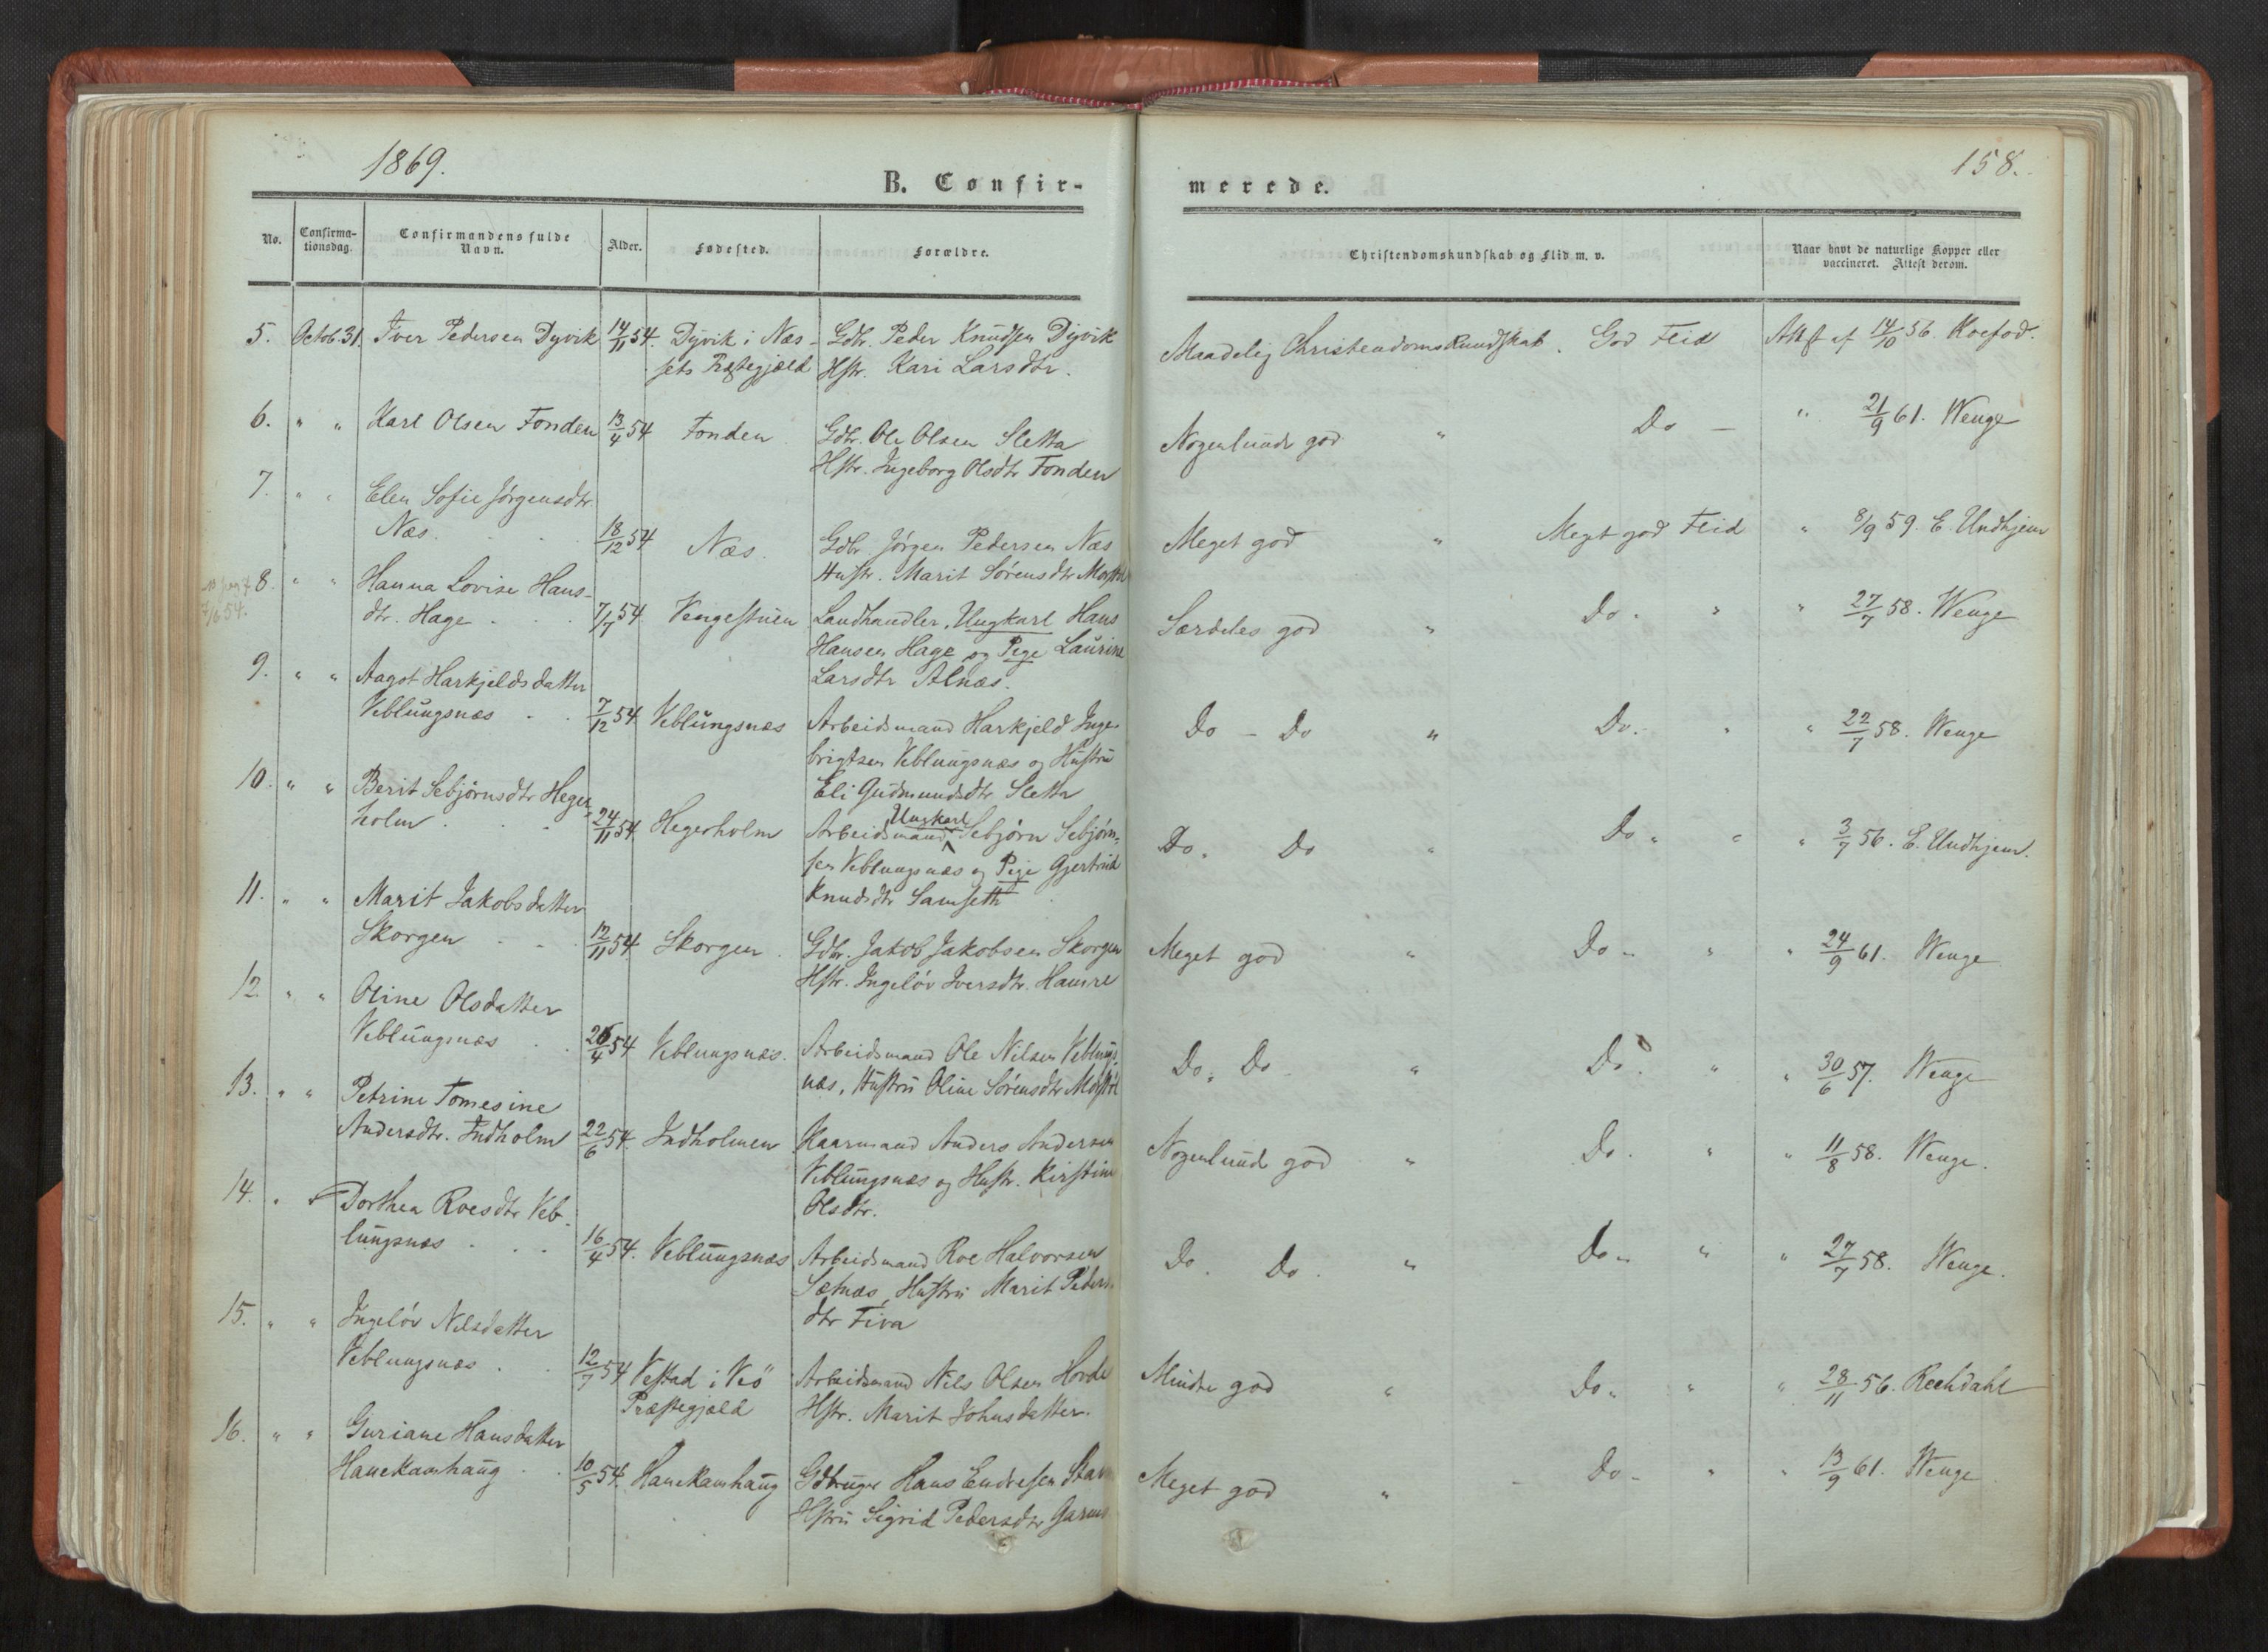 1869.
158.
B. Confir-
merede.
No.
Confirma-
tionsdag.
Confirmandens fulde
Navn.
Alder.
Fødested.
Forældre.
Christendomskundskab og Flid m. v.
Naar havt de naturlige Kopper eller
vaccineret. Attest derom.
5. Octob. 31. Iver Pedersen Dyvik 14/11 54. Dyvik i Næs- Gdbr. Peder Knudsen Dyvik Maadelig Christendomskundskab. God Flid Attst af 14/10 56. Koefod.
sets Præstegjæld Hstr. Kari Larsdtr.
6. " " Karl Olsen Fonden 13/4 54 Fonden Gdbr. Ole Olsen Sletta Nogenlunde god " Do — " 21/9 61. Wenge
Hstr. Ingeborg Olsdtr Fonden
7. " " Elen Sofie Jørgensdtr.
Næs. 18/12 54 Næs. Gdbr. Jørgen Pedersen Næs Meget god " Meget god Flid " 8/9 59. E. Undhjem
Hustr. Marit Sørensdtr
8. " " Hanna Lovise Hans-
7/6 54.
dtr. Hage 7/7 54 Vengestuen Landhandler, Ungkarl Hans Særdeles god " Do. " " 27/7 58. Wenge
Hansen Hage og Pige Laurine
Larsdtr Alnæs.
9. " " Aagot Harkjeldsdatter
Veblungsnæs 7/12 54 Veblungsnæs Arbeidsmand Harkjeld Inge- Do - Do " Do. " " 22/7 58. Wenge
brigtsen Veblungsnæs og Hustru
Eli Gudmundsdtr Sletta
10. " " Berit Sebjørnsdtr Heger-
Ungkarl
holm 24/11 54. Hegerholm Arbeidsmand Sebjørn Sebjørn- Do. Do " Do " " " 3/7 56. E. Undhjem.
sen Veblungsnæs og Pige Gjertrud
Knudsdtr Samseth
11. " " Marit Jakobsdatter
Skorgen 12/11 54 Skorgen. Gdbr. Jakob Jakobsen Skorgen Meget god " Do " " " 24/9 61. Wenge
Hstr. Ingeløv Iversdtr. Hamre
12. " " Oline Olsdatter
Veblungsnæs 26/4 54 Veblungsnæs. Arbeidsmand Ole Nilsen Veblungs- Do. Do " Do. " " 30/6 57. Wenge
næs, Hustru Oline Sørensdtr
13. " " Petrine Tomesine
Andersdtr. Indholm 22/6 54. Indholmen Kaarmand Anders Andersen Nogenlund god " Do. " " 11/8 58. Wenge.
Veblungsnæs og Hustr. Kirstine
Olsdtr.
14. " " Dorthea Roesdtr Veb-
lungsnæs 16/4 54. Veblungsnæs Arbeidsmand Roe Halvorsen Do. Do. " Do " " " 27/7 58. Wenge.
Sætnæs, Hustru Marit Peders-
dtr Fiva
15. " " Ingeløv Nilsdatter
Veblungsnæs 12/7 54 Vestad i Veø Arbeidsmand Nils Olsen Hovde Mindre god " Do. " " 28/11 56. Rechdahl
Præstegjæld Hstr. Marit Johnsdatter.
16. " " Guriane Hansdatter
Hanekamhaug 10/5 54. Hanekamhaug Gdbruger Hans Endresen Meget god " Do - " " 13/9 61. Wenge
Hstru Sigrid Pedersdtr